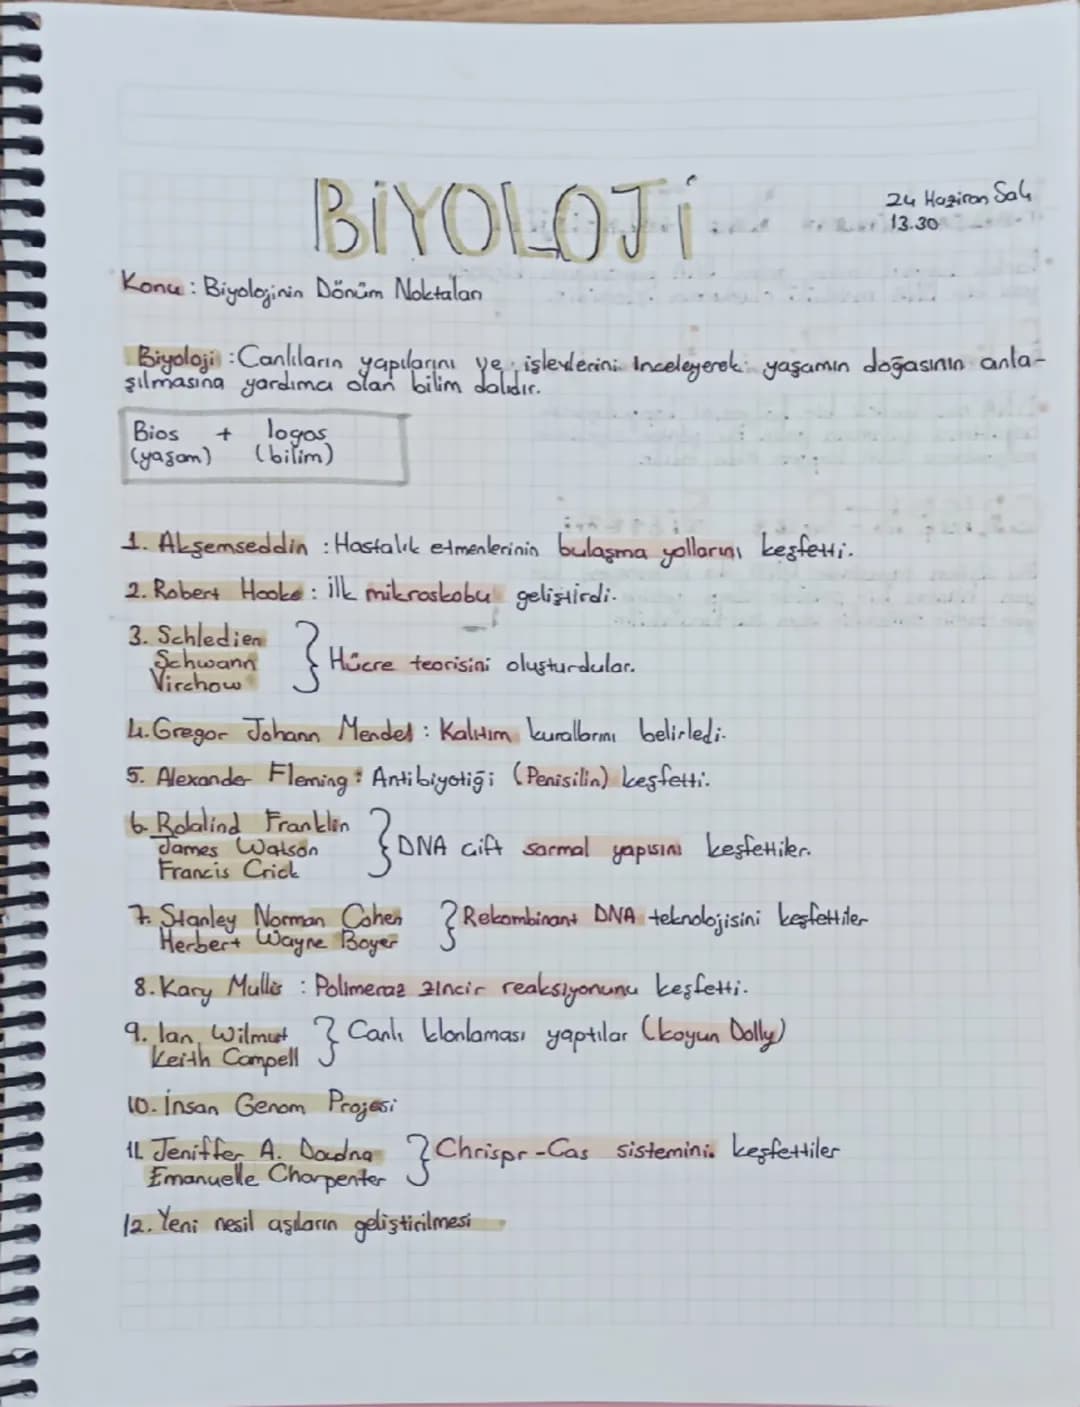 BİYOLOJİ
24 Haziran Salı
13.30
Konu : Biyolojinin Dönüm Noktaları
Biyoloji : Canlıların yapılarını ve işlevlerini inceleyerek yaşamın doğasının anla-
şılmasına yardımcı olan bilim dalıdır.
Bios + logos
(yaşam) (bilim)
1. Akşemseddin : Hastalık etmenlerinin bulaşma yollarını keşfetti.
2. Robert Hooke : ilk mikroskobu geliştirdi.
3. Schledien
Schwann
Virchow
} Hücre teorisini oluşturdular.
4. Gregor Johann Mendel : Kalıtım kurallarını belirledi.
5. Alexander Fleming : Antibiyotiği (Penisilin) keşfetti.
6. Rolalind Franklin
James Watson
Francis Crick
} DNA çift sarmal yapısını keşfettiler.
7. Stanley Norman Cohen
Herbert Wayne Boyer
} Rekombinant DNA teknolojisini keşfettiler
8. Kary Mullis : Polimeraz zincir reaksiyonunu keşfetti.
9. Ian Wilmut
Keith Campell
} Canlı klonlaması yaptılar (koyun Dolly)
10. İnsan Genom Projesi
11. Jeniffer A. Doudna
Emanuelle Charpenter
} Chrispr-Cas sistemini keşfettiler
12. Yeni nesil aşıların geliştirilmesi